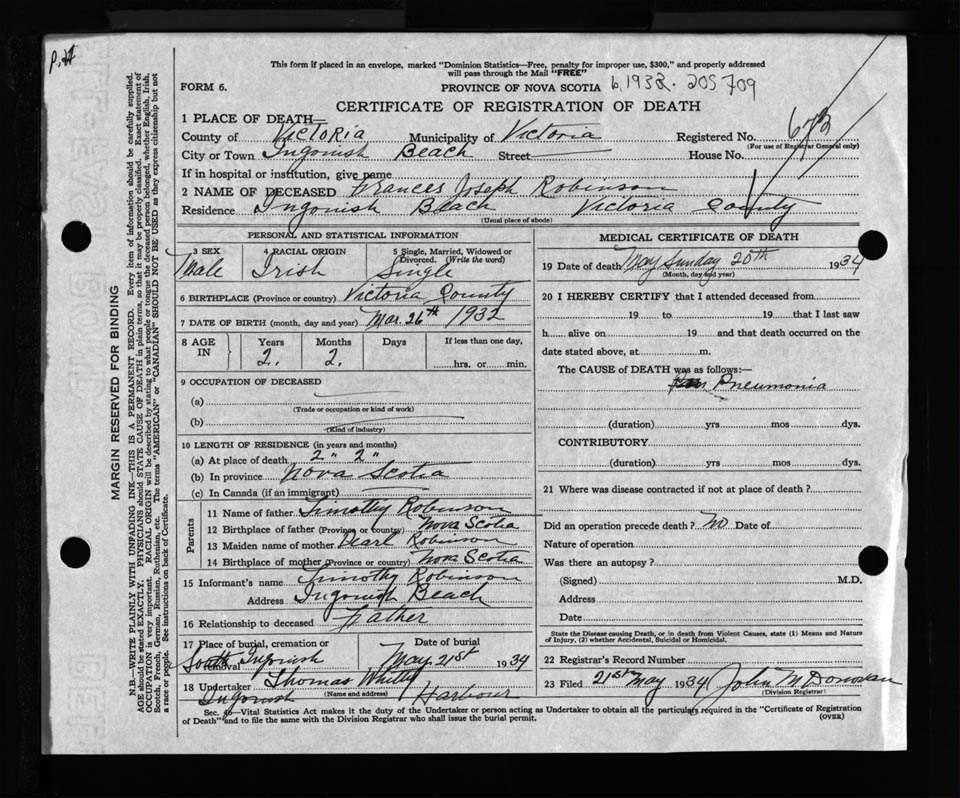 P.H
This form if placed in an envelope, marked "Dominion Statistics—Free, penalty for improper use, $300," and properly addressed
will pass through the Mail "FREE"
FORM 6.
PROVINCE OF NOVA SCOTIA 205709
CERTIFICATE OF REGISTRATION OF DEATH
1 PLACE OF DEATH—
County of Victoria Municipality of Victoria Registered No. 673
(For use of Registrar General only)
City or Town Ingonish Beach Street House No.
If in hospital or institution, give name
2 NAME OF DECEASED Frances Joseph Robinson
Residence Ingonish Beach Victoria County
(Usual place of abode)
PERSONAL AND STATISTICAL INFORMATION
3 SEX 4 RACIAL ORIGIN 5 Single, Married, Widowed or
Divorced. (Write the word)
Male Irish Single
6 BIRTHPLACE (Province or country) Victoria County
7 DATE OF BIRTH (month, day and year) Mar. 26th 1932
8 AGE IN Years Months Days If less than one day,
2. 2. hrs. or min.
9 OCCUPATION OF DECEASED
(a)
(Trade or occupation or kind of work)
(b)
(Kind of industry)
10 LENGTH OF RESIDENCE (in years and months)
(a) At place of death 2 " 2 "
(b) In province Nova Scotia
(c) In Canada (if an immigrant)
Parents
11 Name of father Timothy Robinson
12 Birthplace of father (Province or country) Nova Scotia
13 Maiden name of mother Pearl Robinson
14 Birthplace of mother (Province or country) Nova Scotia
15 Informant's name Timothy Robinson
Address Ingonish Beach
16 Relationship to deceased Father
17 Place of burial, cremation or removal Date of burial
South Ingonish May 21st 1934
18 Undertaker Thomas Whitty
(Name and address)
Ingonish Harbour
MEDICAL CERTIFICATE OF DEATH
19 Date of death May Sunday 20th 1934
(Month, day and year)
20 I HEREBY CERTIFY that I attended deceased from
19 to 19 that I last saw
h alive on 19 and that death occurred on the
date stated above, at m.
The CAUSE of DEATH was as follows:—
Pneumonia
(duration) yrs mos dys.
CONTRIBUTORY
(duration) yrs mos dys.
21 Where was disease contracted if not at place of death?
Did an operation precede death? No Date of
Nature of operation
Was there an autopsy?
(Signed) M.D.
Address
Date
State the Disease causing Death, or in death from Violent Causes, state (1) Means and Nature
of Injury, (2) whether Accidental, Suicidal or Homicidal.
22 Registrar's Record Number
23 Filed 21st May 1934 John M Donovan
(Division Registrar)
Sec. 46—Vital Statistics Act makes it the duty of the Undertaker or person acting as Undertaker to obtain all the particulars required in the "Certificate of Registration
of Death" and to file the same with the Division Registrar who shall issue the burial permit.
(OVER)
MARGIN RESERVED FOR BINDING
N.B.—WRITE PLAINLY WITH UNFADING INK—THIS IS A PERMANENT RECORD. Every item of information should be carefully supplied.
AGE should be stated EXACTLY. PHYSICIANS should STATE CAUSE OF DEATH in plain terms, so that it may be properly classified. Exact statement of
OCCUPATION is very important. RACIAL ORIGIN will be described by stating to what people or tongue the deceased person belonged, whether English, Irish,
Scotch, French, German, Russian, Ruthenian, etc. The terms "AMERICAN" or "CANADIAN" SHOULD NOT BE USED as they express citizenship but not
a race or people. See instructions on back of Certificate.